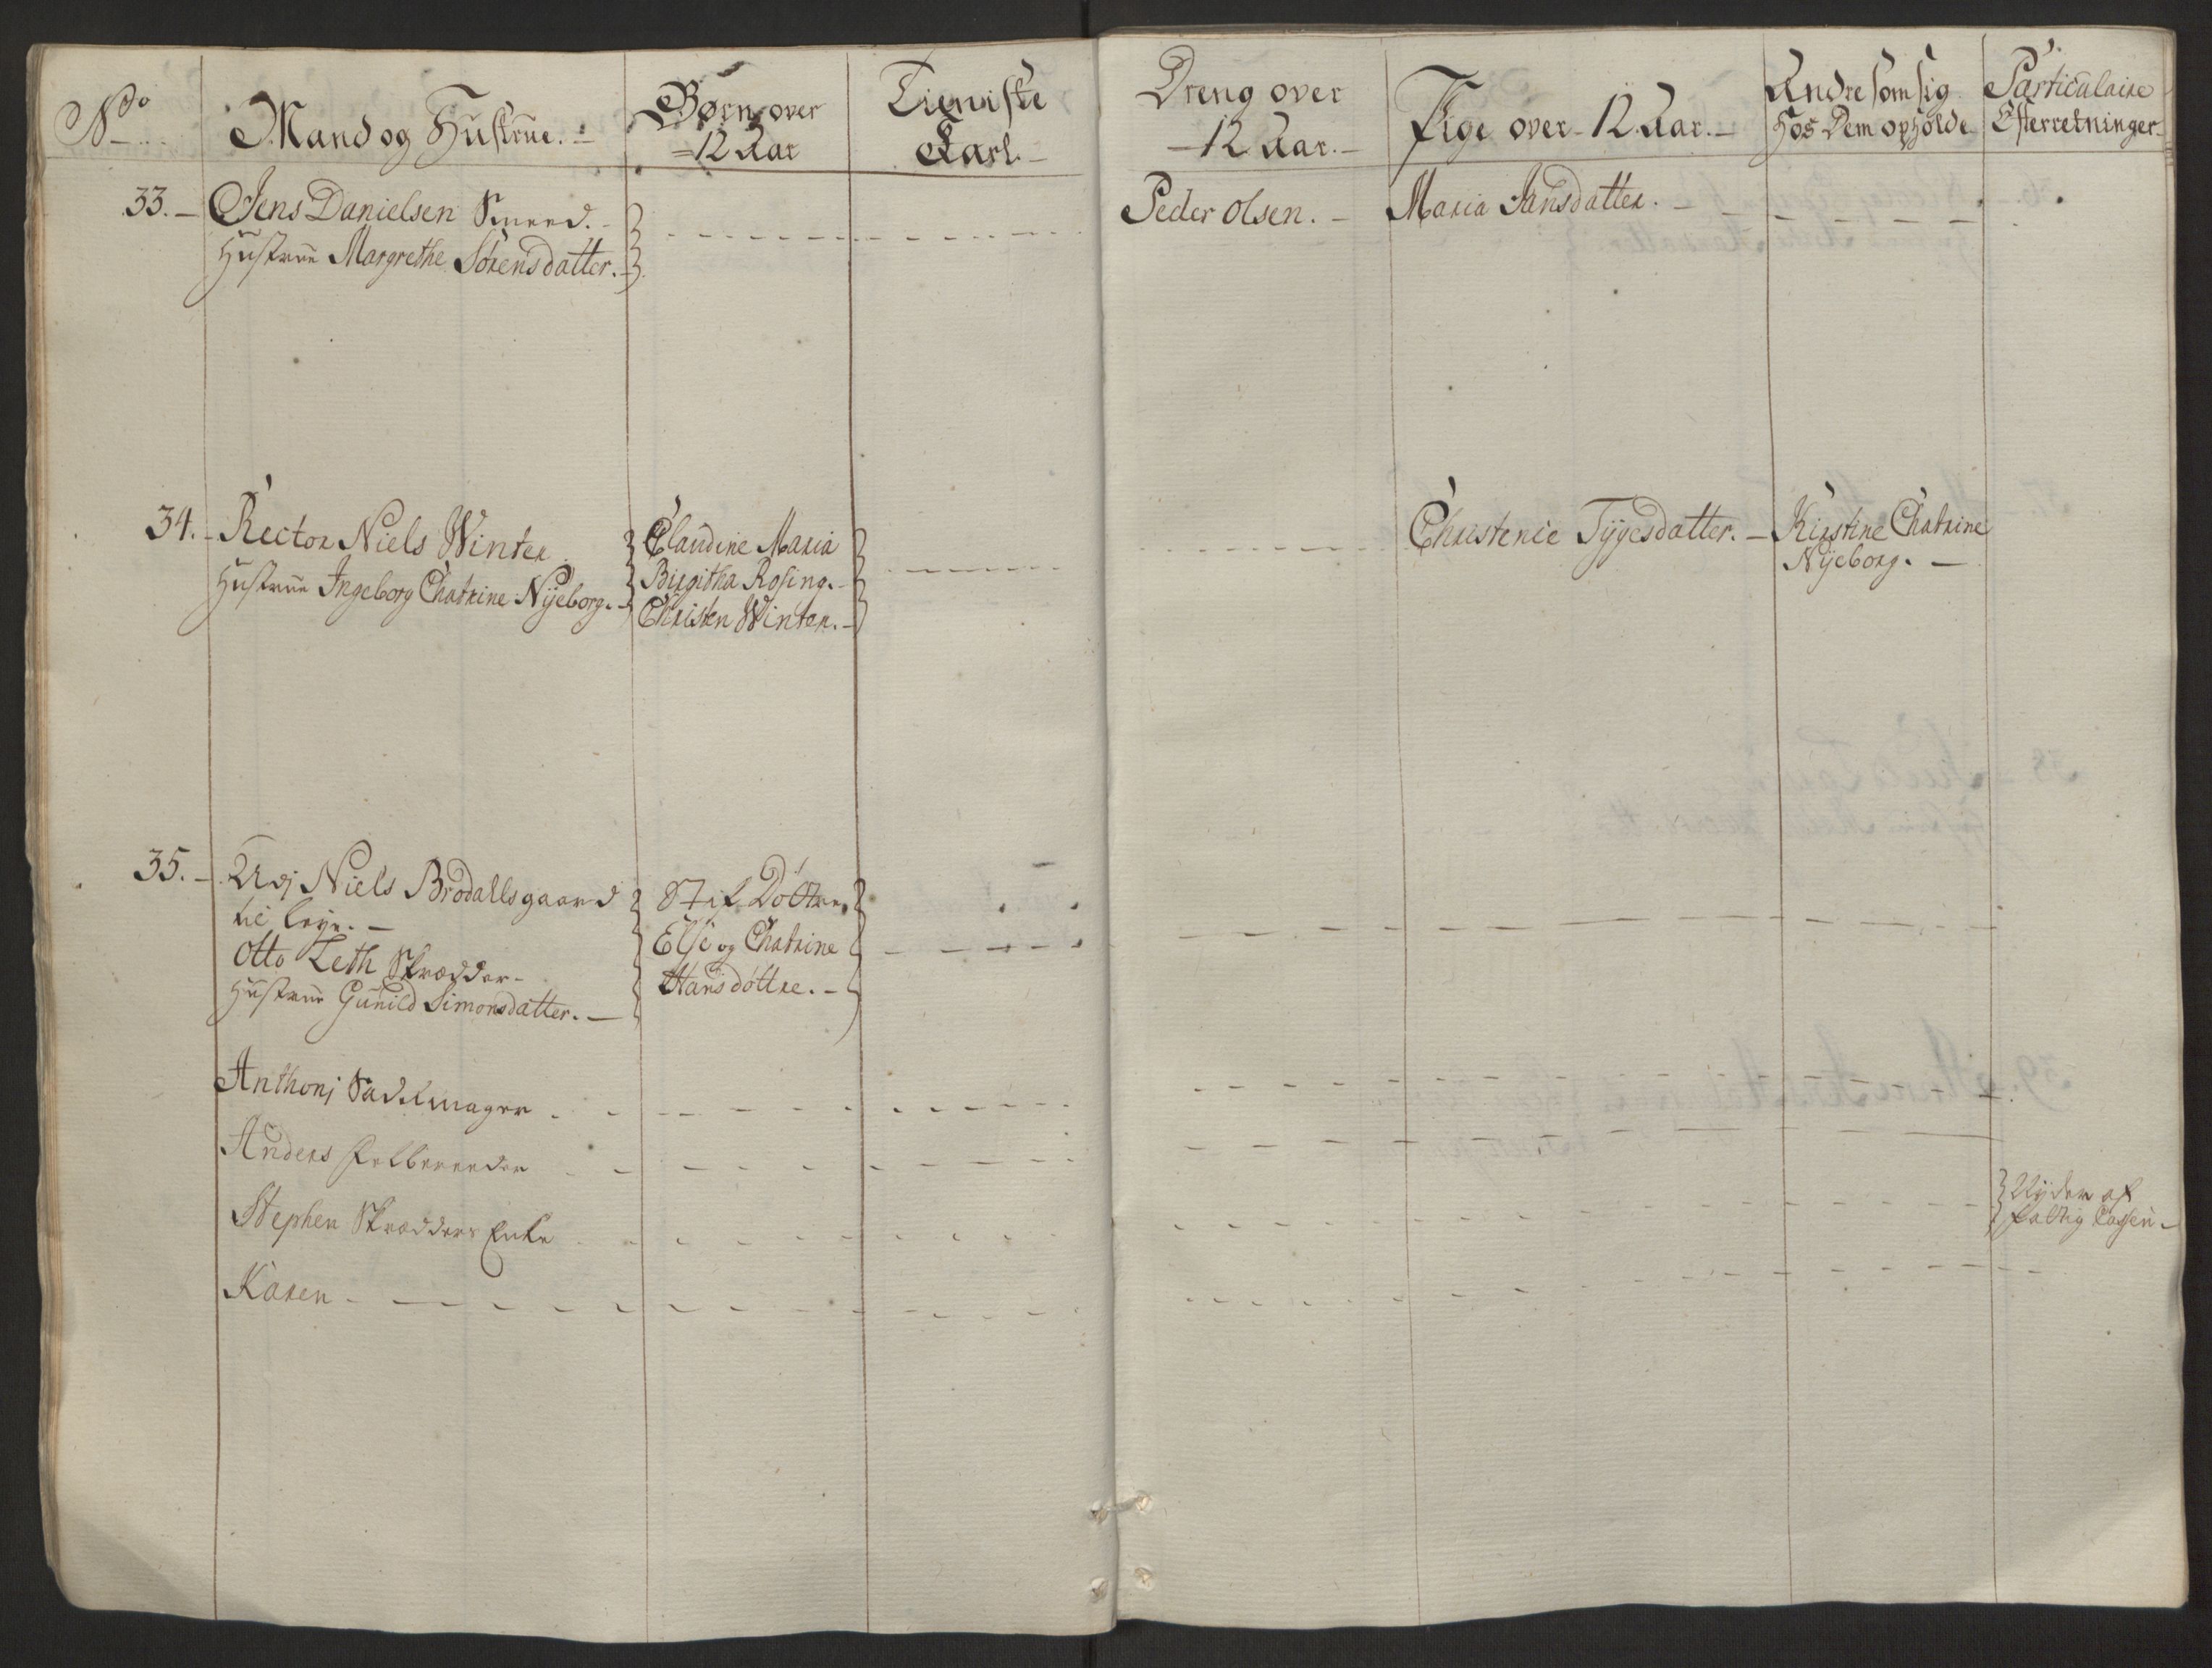 No
Mand og Hustrue.
Børn over
12 Aar
Tieniste
Karl.
Dreng over
12 Aar.
Pige over 12 Aar.
Andre som sig
hos Dem opholde
Particulaire
Efterretninger
33. Jens Danielsen Smeed.
Hustrue Margrethe Sörensdatter.
Peder Olsen.
Maria Jansdatter.
34. Rector Niels Winter
Hustrue Ingeborg Chatrine Nÿeborg.
Claudine Maria
Birgitha Rosing.
Christen Winter.
Christence Tÿgesdatter.
Kirstine Chatrine
Nÿeborg.
35. Udj Niels Brodallsgaard
til leye.
Otto Leth Skrædder
Hustrue Gunild Simonsdatter.
Stif Döttre
Else og Chatrine
Hansdöttre.
Anthonj Sadelmager
Anders Feldbereeder
Stephen Skrædders Enke
Nyder af
fattig Cassen
Karen